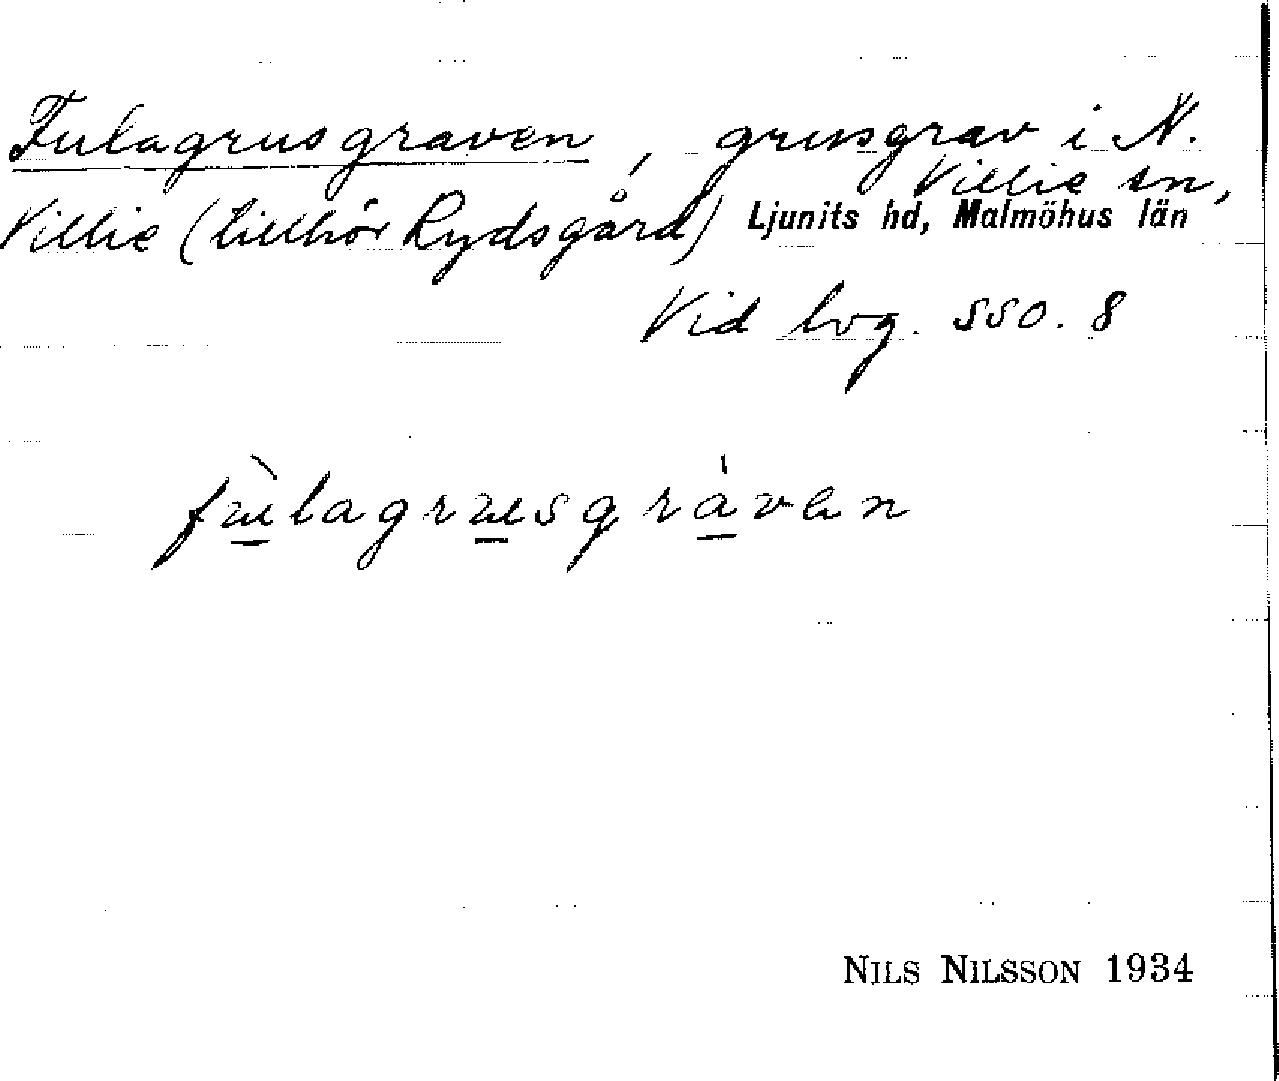 Fulagrusgraven, grusgrav i N.
Villie sn,
Villie (tillhör Rydsgård) Ljunits hd, Malmöhus län
Vid bog. SSO. 8
NILS NILSSON 1934